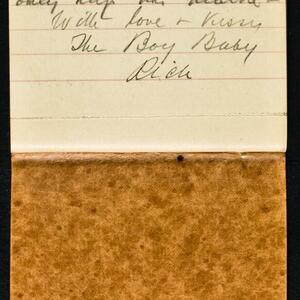 only
With Love & Kisses
The Boy Baby
Rich